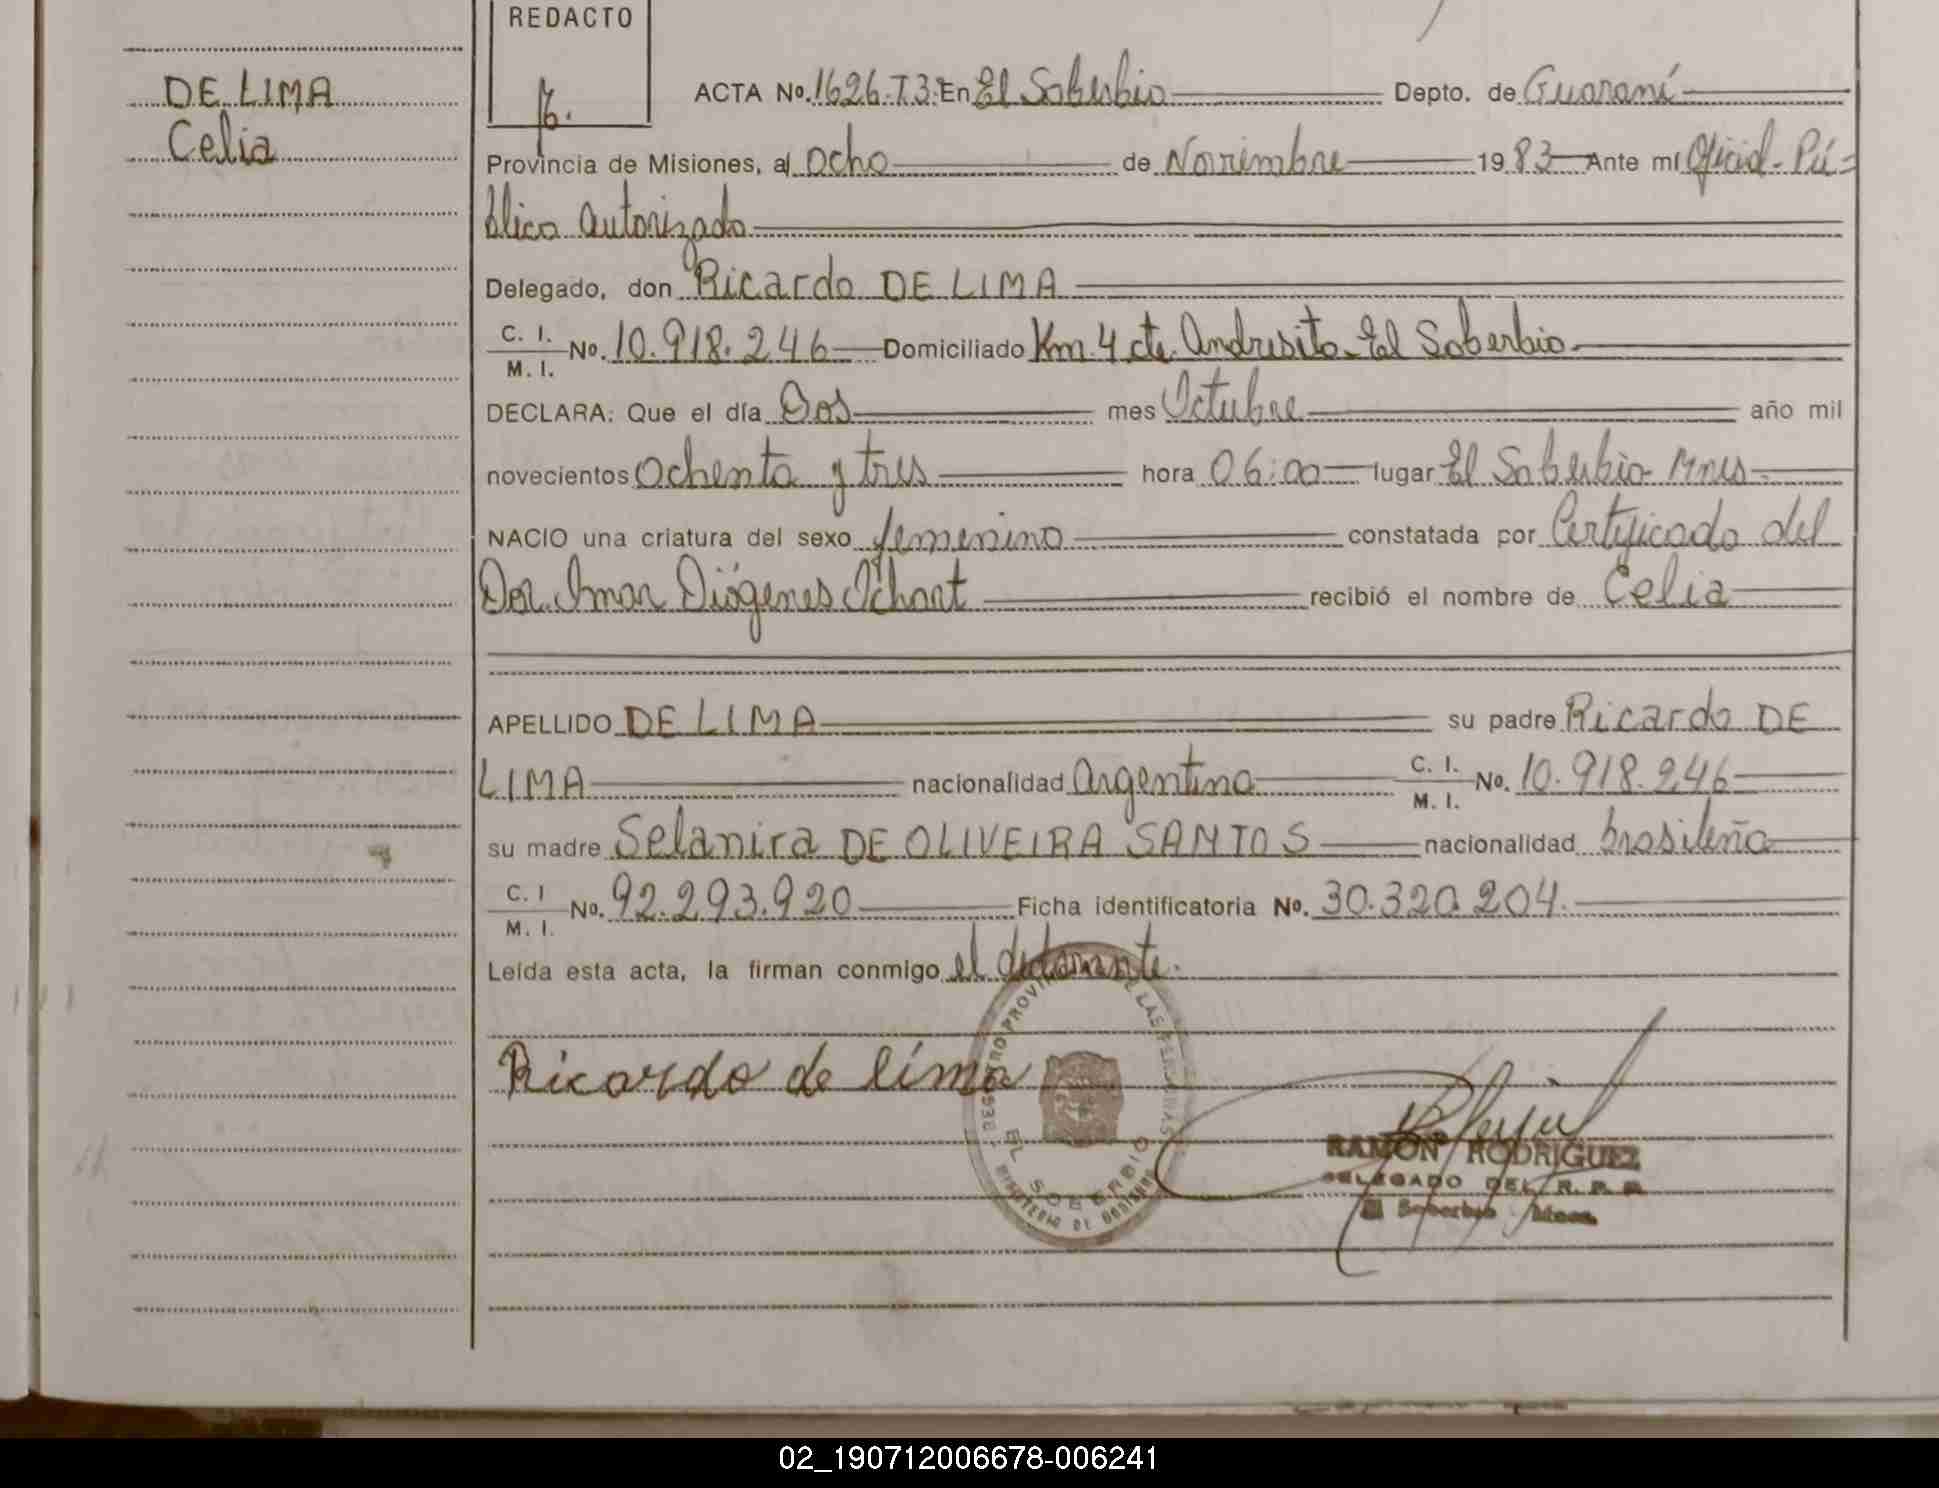 REDACTO
DE LIMA
Celia
ACTA No. 1626.T3. En El Soberbio Depto. de Guaraní
Provincia de Misiones, a ocho de Noviembre 1983 Ante mí Oficial Pú=
blico autorizado
Delegado, don Ricardo DE LIMA
C. I.
M. I. No. 10.918.246 Domiciliado Km. 4 cte. Andresito. El Soberbio
DECLARA: Que el día Dos mes Octubre año mil
novecientos ochenta y tres hora 06:00 lugar El Soberbio Mnes
NACIO una criatura del sexo femenino constatada por Certificado del
Dor. Omar Diógenes recibió el nombre de Celia
APELLIDO DE LIMA su padre Ricardo DE
LIMA nacionalidad argentina C. I. M. I. No. 10.918.246
su madre Selanira DE OLIVEIRA SANTOS nacionalidad brasileña
C. I
M. I. No. 92.293.920 Ficha identificatoria No. 30.320.204.
Leída esta acta, la firman conmigo el declarante.
Ricardo de lima
REGISTRO PROVINCIAL DE LAS PERSONAS
EL SOBERBIO
MINISTERIO DE GOBIERNO
RAMON RODRIGUEZ
DELEGADO DEL R. P. P.
El Soberbio Mnes.
02_190712006678-006241